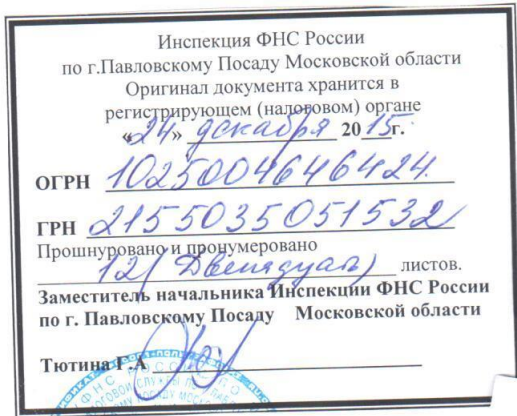 Инспекция ФНС России
по г.Павловскому Посаду Московской области
Оригинал документа хранится в
регистрирующем (налоговом) органе
«24» декабря 2015г.
ОГРН 1025004646424.
ГРН 2155035051532
Прошнуровано и пронумеровано
12 (Двенадцать) листов.
Заместитель начальника Инспекции ФНС России
по г. Павловскому Посаду Московской области
Тютина Г.А